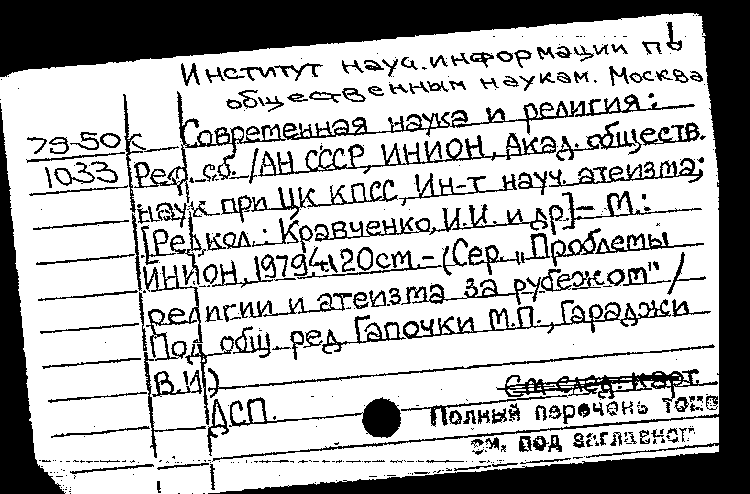 Институт науч. информации по
общественным наукам. Москва
79-50к Современная наука и религия:
1033 Реф. сб. / АН СССР, ИНИОН, Акад. обществ.
наук при ЦК КПСС, Ин-т науч. атеизма;
[Редкол.: Кравченко, И.И. и др]. - М.:
ИНИОН, 1979 20см. - (Сер. „Проблемы
религии и атеизма за рубежом" /
Под общ. ред. Гапочки М.П., Гараджи
В.И.)
ДСП.
См след. карт.
Полный перечень томо
см. под заглавном